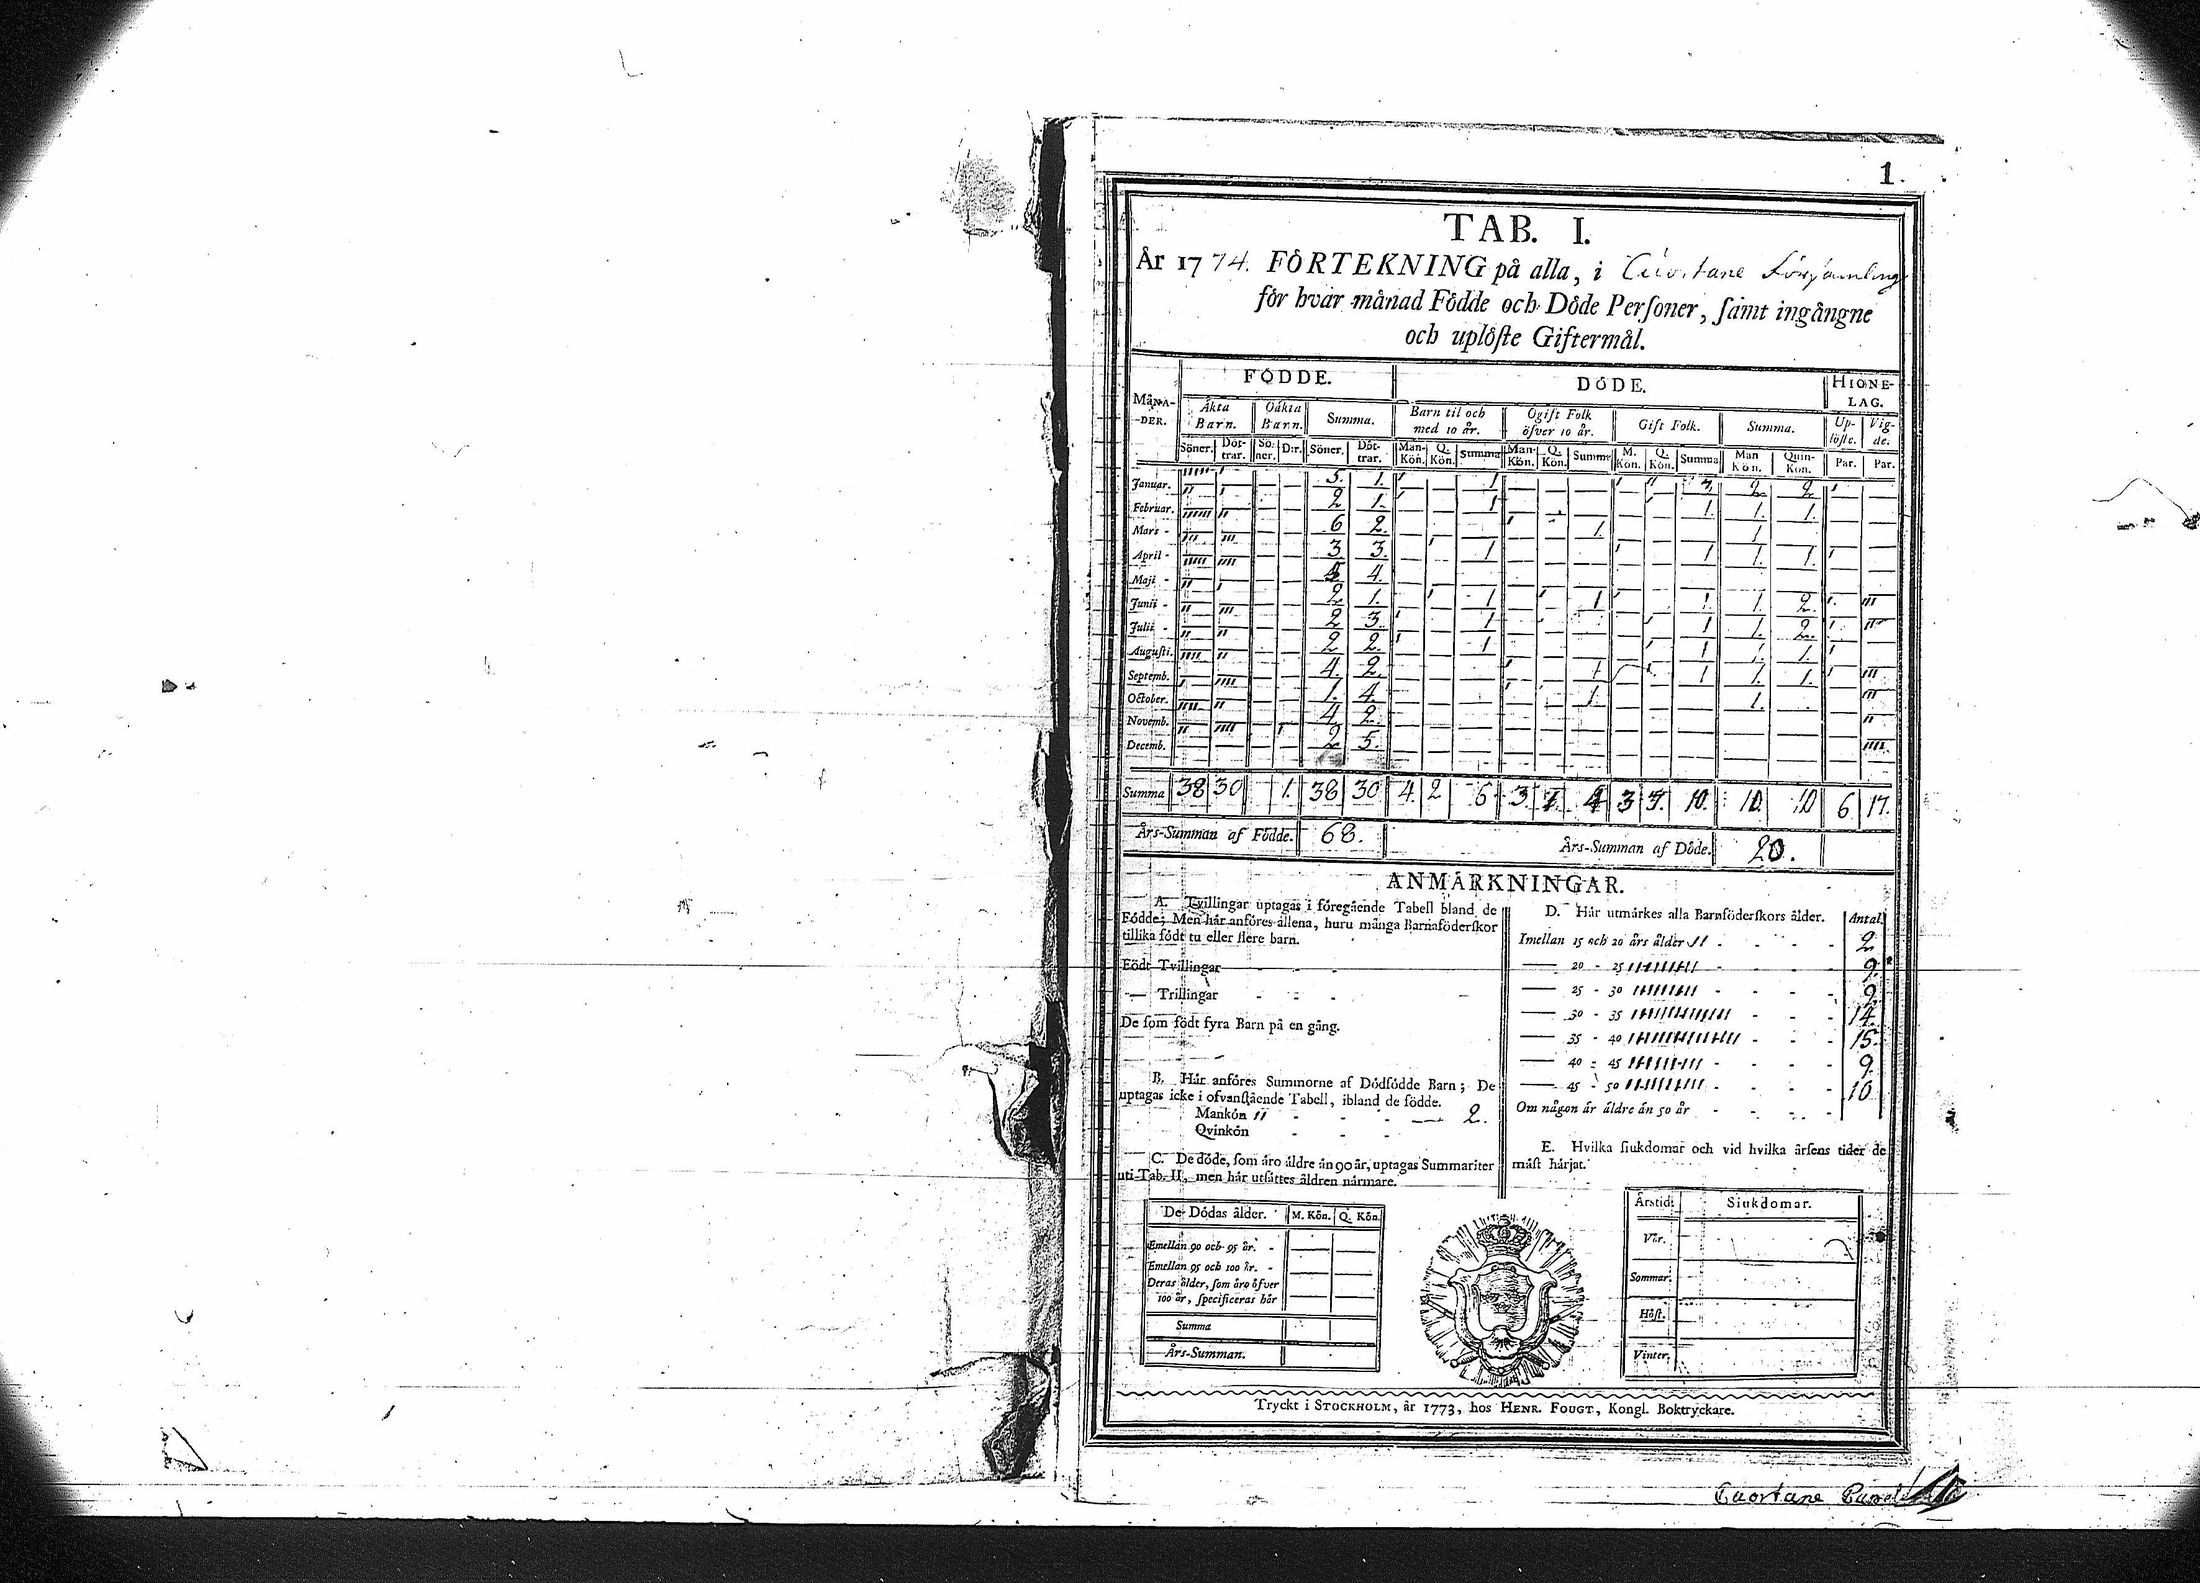 1.
TAB. I.
År 1774. FÖRTEKNING på alla, i Cuortane Församling
för hvar månad Födde och Döde Personer, samt ingångne
och uplöste Giftermål.
MÅNA-DER. FÖDDE. DÖDE. HIONE-LAG.
Äkta Barn. Oäkta Barn. Summa. Barn til och med 10 år. Ogift Folk öfver 10 år. Gift Folk. Summa. Up-löste. Vig-de.
Söner. Döt-trar. Sö-ner. D:r. Söner. Döt-trar. Man-Kön. Q. Kön. Summa Man-Kön. Q. Kön. Summa M. Kön. Q. Kön. Summa Man Kön. Quin-Kön. Par. Par.
Januar. 5. 1. 1 3 2 2
Februar. 2 1. 1 1. 1. 1.
Mars - 6 2. 1. 1
April - 3 3. 1 1 1. 1.
Maji - 5 4.
Junii - 2 1. 1 1 1. 1. 2.
Julii - 2 3. 1 1 1. 2.
Augusti. 2 2. 1 1 1. 1.
Septemb. 4. 2. 1 1 1. 1.
October. 1. 4 1. 1.
Novemb. 4 2
Decemb. 2 5.
Summa 38 30 1. 38 30 4. 2 6 3. 4 3 10. 10. 10 6 17.
Års-Summan af Födde. 68. Års-Summan af Döde. 20.
ANMÄRKNINGAR.
A. Tvillingar uptagas i föregående Tabell bland de
Födde; Men här anföres allena, huru många Barnaföderskor
tillika födt tu eller flere barn.
Födt Tvillingar
— Trillingar
De som födt fyra Barn på en gång.
B. Här anföres Summorne af Dödfödde Barn; De
uptagas icke i ofvanstående Tabell, ibland de födde.
Mankön 11 — 2.
Qvinkön
C. De döde, som äro äldre än 90 år, uptagas Summariter
uti Tab. II, men här utsättes åldren närmare.
De Dödas ålder. M. Kön. Q. Kön.
Emellan 90 och 95 år.
Emellan 95 och 100 år.
Deras ålder, som äro öfver
100 år, specificeras här
Summa
Års-Summan.
D. Här utmärkes alla Barnföderskors ålder. Antal.
Imellan 15 och 20 års ålder 2
— 20 - 25 9.
— 25 - 30 9.
— 30 - 35 14.
— 35 - 40 15.
— 40 - 45 9.
— 45 - 50 10.
Om någon är äldre än 50 år
E. Hvilka siukdomar och vid hvilka årsens tider de
mäst härjat.
Årstid: Siukdomar.
Vår.
Sommar.
Höst.
Vinter.
Tryckt i STOCKHOLM, år 1773, hos HENR. FOUGT, Kongl. Boktryckare.
Cuortane